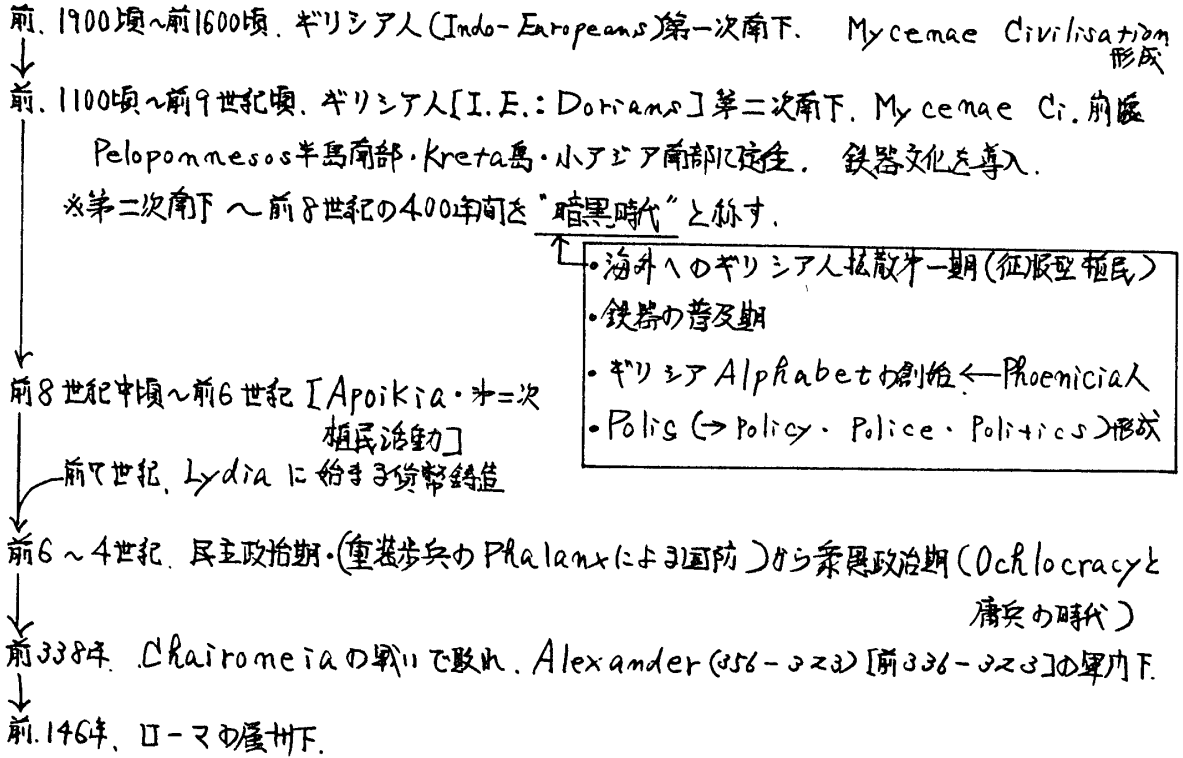 前.1900頃~前1600頃.ギリシア人(Indo-Europeans)第一次南下. Mycenae Civilisation
形成
前.1100頃~前9世紀頃.ギリシア人[I.E.:Dorians]第二次南下.Mycenae Ci.崩壊
Peloponnesos半島南部・Kreta島・小アジア南部に定住. 鉄器文化を導入.
※第二次南下~前8世紀の400年間を"暗黒時代"と称す.
・海外へのギリシア人拡散第一期(征服型植民)
・鉄器の普及期
・ギリシアAlphabetの創始←Phoenicia人
・Polis(→Policy・Police・Politics)形成
前8世紀中頃~前6世紀[Apoikia・第二次
植民活動]
前7世紀、Lydiaに始まる貨幣鋳造
前6~4世紀.民主政治期・(重装歩兵のPhalanxによる国防)から衆愚政治期(Ochlocracyと
傭兵の時代)
前338年.Chaironeiaの戦いで敗れ.Alexander(356-323)[前336-323]の軍門下.
前.146年、ローマの属州下.